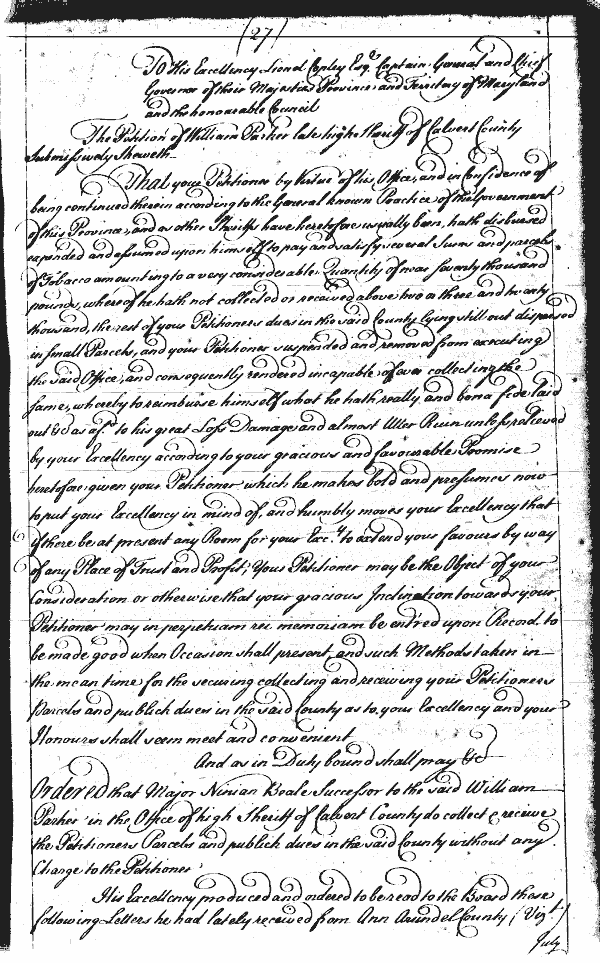 (27)
To His Excellency Lionel Copley Esqr Captain General and Chief
Governor of their Majesties Province and Territory of Maryland
and the honourable Council
The Petition of William Parker late high Sheriff of Calvert County
Submissively Sheweth
That your Petitioner by Virtue of his Office, and in Confidence of
being continued therein according to the General known Practice of the Government
of this Province, and as other Sheriffs have heretofore usually been, hath disbursed
expended and assumed upon himself to pay and satisfy several Sums and parcels
of Tobacco amounting to a very considerable Quantity of near seventy thousand
pounds, whereof he hath not collected or received above two a three and twenty
thousand, the rest of your Petitioners dues in the said County lying still out dispersed
in small Parcels, and your Petitioner suspended and removed from executing
the said Office, and consequently rendered incapable of ever collecting the
same, whereby to reimburse himself what he hath really and bona fide laid
out &c as afd. to his great Loss Damage and almost Utter Ruin unless relieved
by your Excellency according to your gracious and favourable Promise
heretofore given your Petitioner which he makes bold and presumes now
to put your Excellency in mind of, and humbly moves your Excellency that
if there be at present any Room for your Exc.y to extend your favours by way
of any Place of Trust and Profit, Your Petitioner may be the Object of your
Consideration or otherwise that your gracious Inclination towards your
Petitioner may in perpetuam rei memoriam be entred upon Record to
be made good when Occasion shall present and such Methods taken in
the mean time for the securing collecting and receiving your Petitioners
Parcels and publick dues in the said County as to your Excellency and your
Honours shall seem meet and convenient
And as in Duty bound shall pray &c
Ordered that Major Ninian Beale Successor to the said William
Parker in the Office of high Sheriff of Calvert County do collect & receive
the Petitioners Parcels and publick dues in the said County without any
Charge to the Petitioner
His Excellency produced and ordered to be read to the Board these
following Letters he had lately received from Ann Arundel County (Vizt)
July